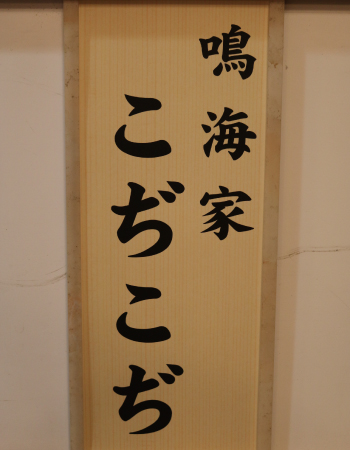 鳴海家
こぢこぢ